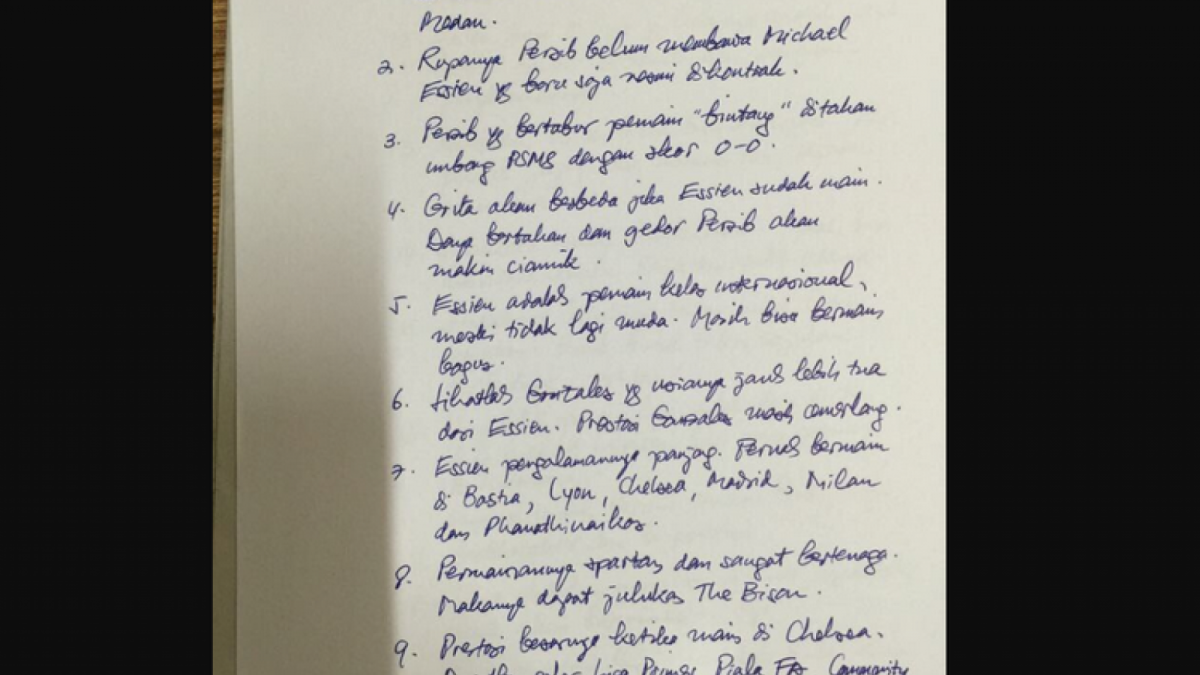 Medan.
2. Rupanya Persib belum membawa Michael
Essien yg baru saja resmi dikontrak.
3. Persib yg bertabur pemain "bintang" ditahan
imbang PSMS dengan skor 0-0.
4. Crita akan berbeda jika Essien sudah main.
Daya bertahan dan gedor Persib akan
makin ciamik.
5. Essien adalah pemain kelas internasional,
meski tidak lagi muda. Masih bisa bermain
bagus.
6. Lihatlah Gonzales yg usianya jauh lebih tua
dari Essien. Prestasi Gonzales masih cemerlang.
7. Essien pengalamannya panjang. Pernah bermain
di Bastia, Lyon, Chelsea, Madrid, Milan
dan Phanathinaikos.
8. Permainannya spartan dan sangat bertenaga.
Makanya dapat julukan The Bison.
9. Prestasi besarnya ketika main di Chelsea.
Piala FA, Community